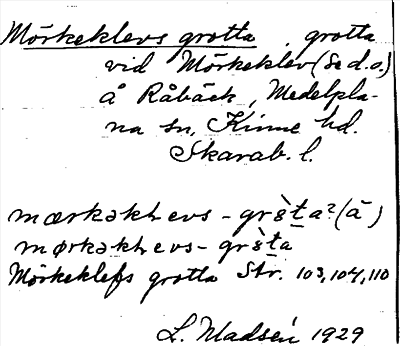 Mörkeklevs grotta, grotta
vid Mörkeklev (se d.o.)
å Råbäck, Medelpla-
na sn, Kinne hd.
Skarab. l.
mærkəkḷevs - gròt̲a² (ā)
mørkəkḷevs - gròt̲a
Mörkeklefs grotta Str. 103, 104, 110
L. Madsén 1929